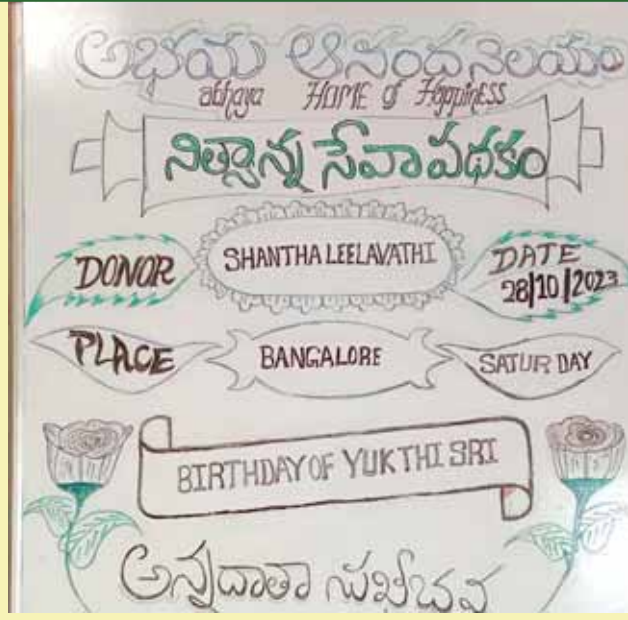 అభయ ఆనంద నిలయం
abhaya HOME of Happiness
నిత్యాన్న సేవా పథకం
DONOR SHANTHA LEELAVATHI DATE 28/10/2023
PLACE BANGALORE SATURDAY
BIRTHDAY OF YUKTHI SRI
అన్నదాతా సుఖీభవ